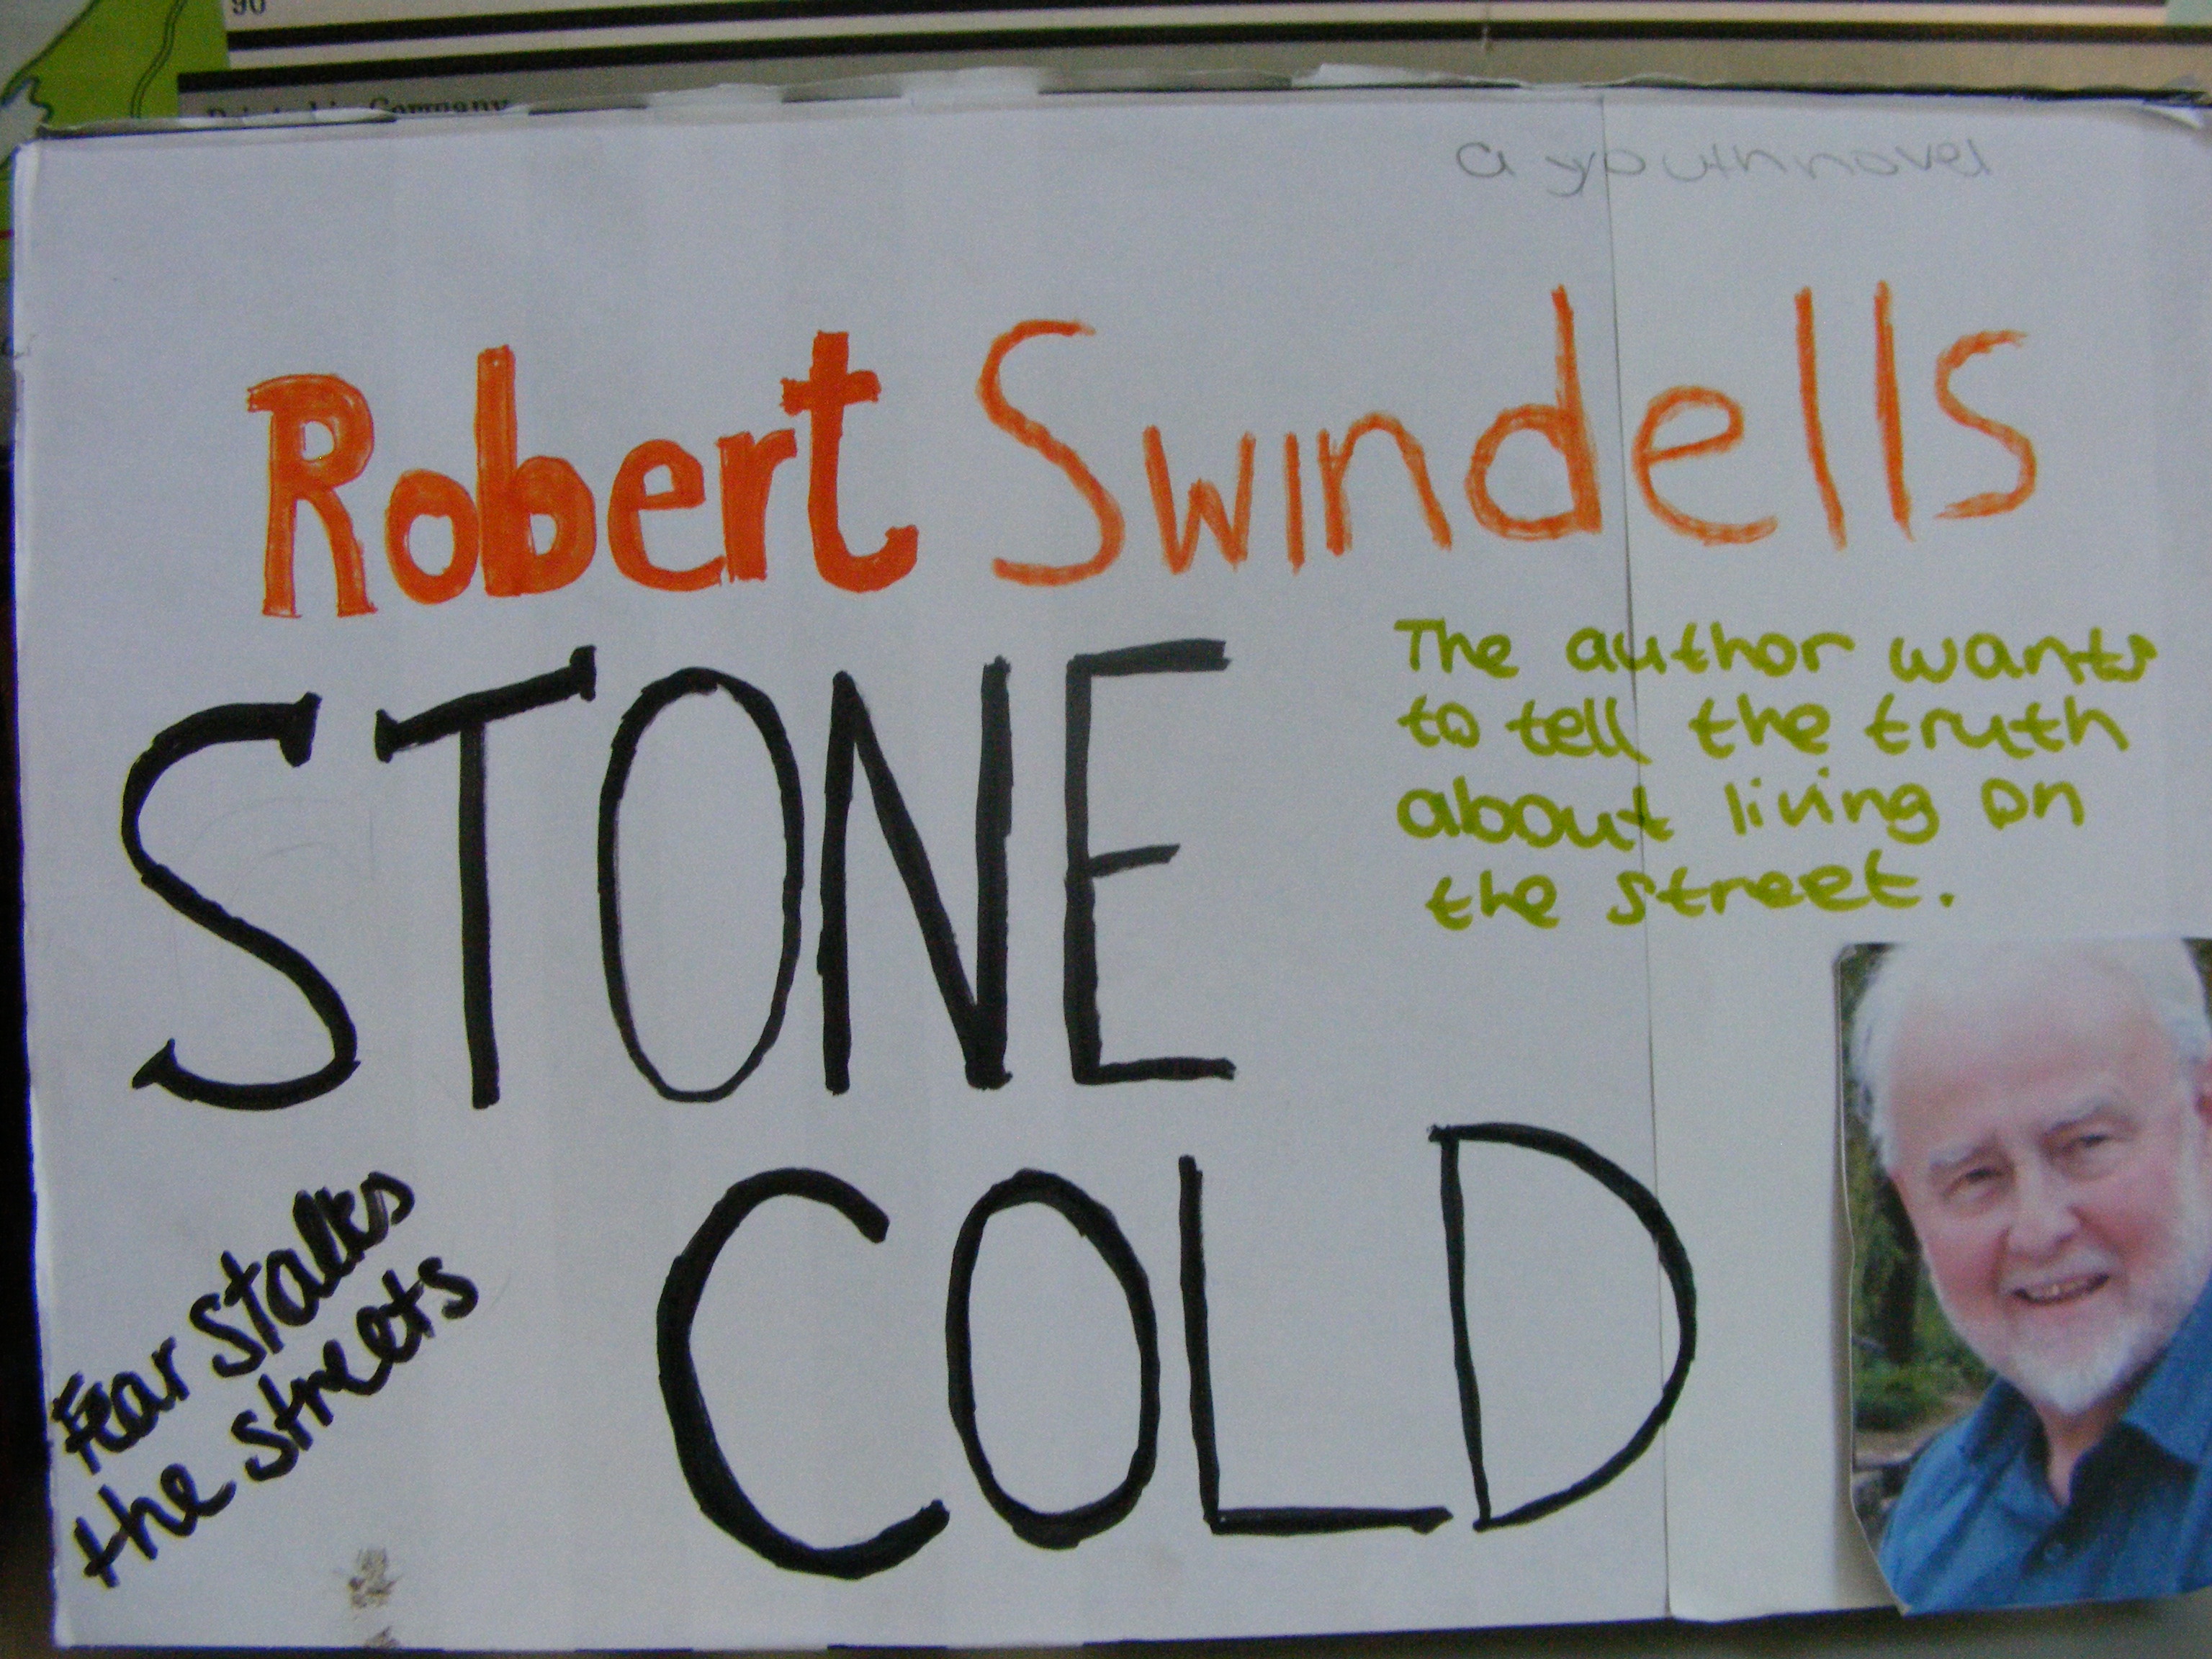 90
Printed in Germany
a youthnovel
Robert Swindells
STONE
COLD
The author wants
to tell the truth
about living on
the street.
Fear stalks
the streets